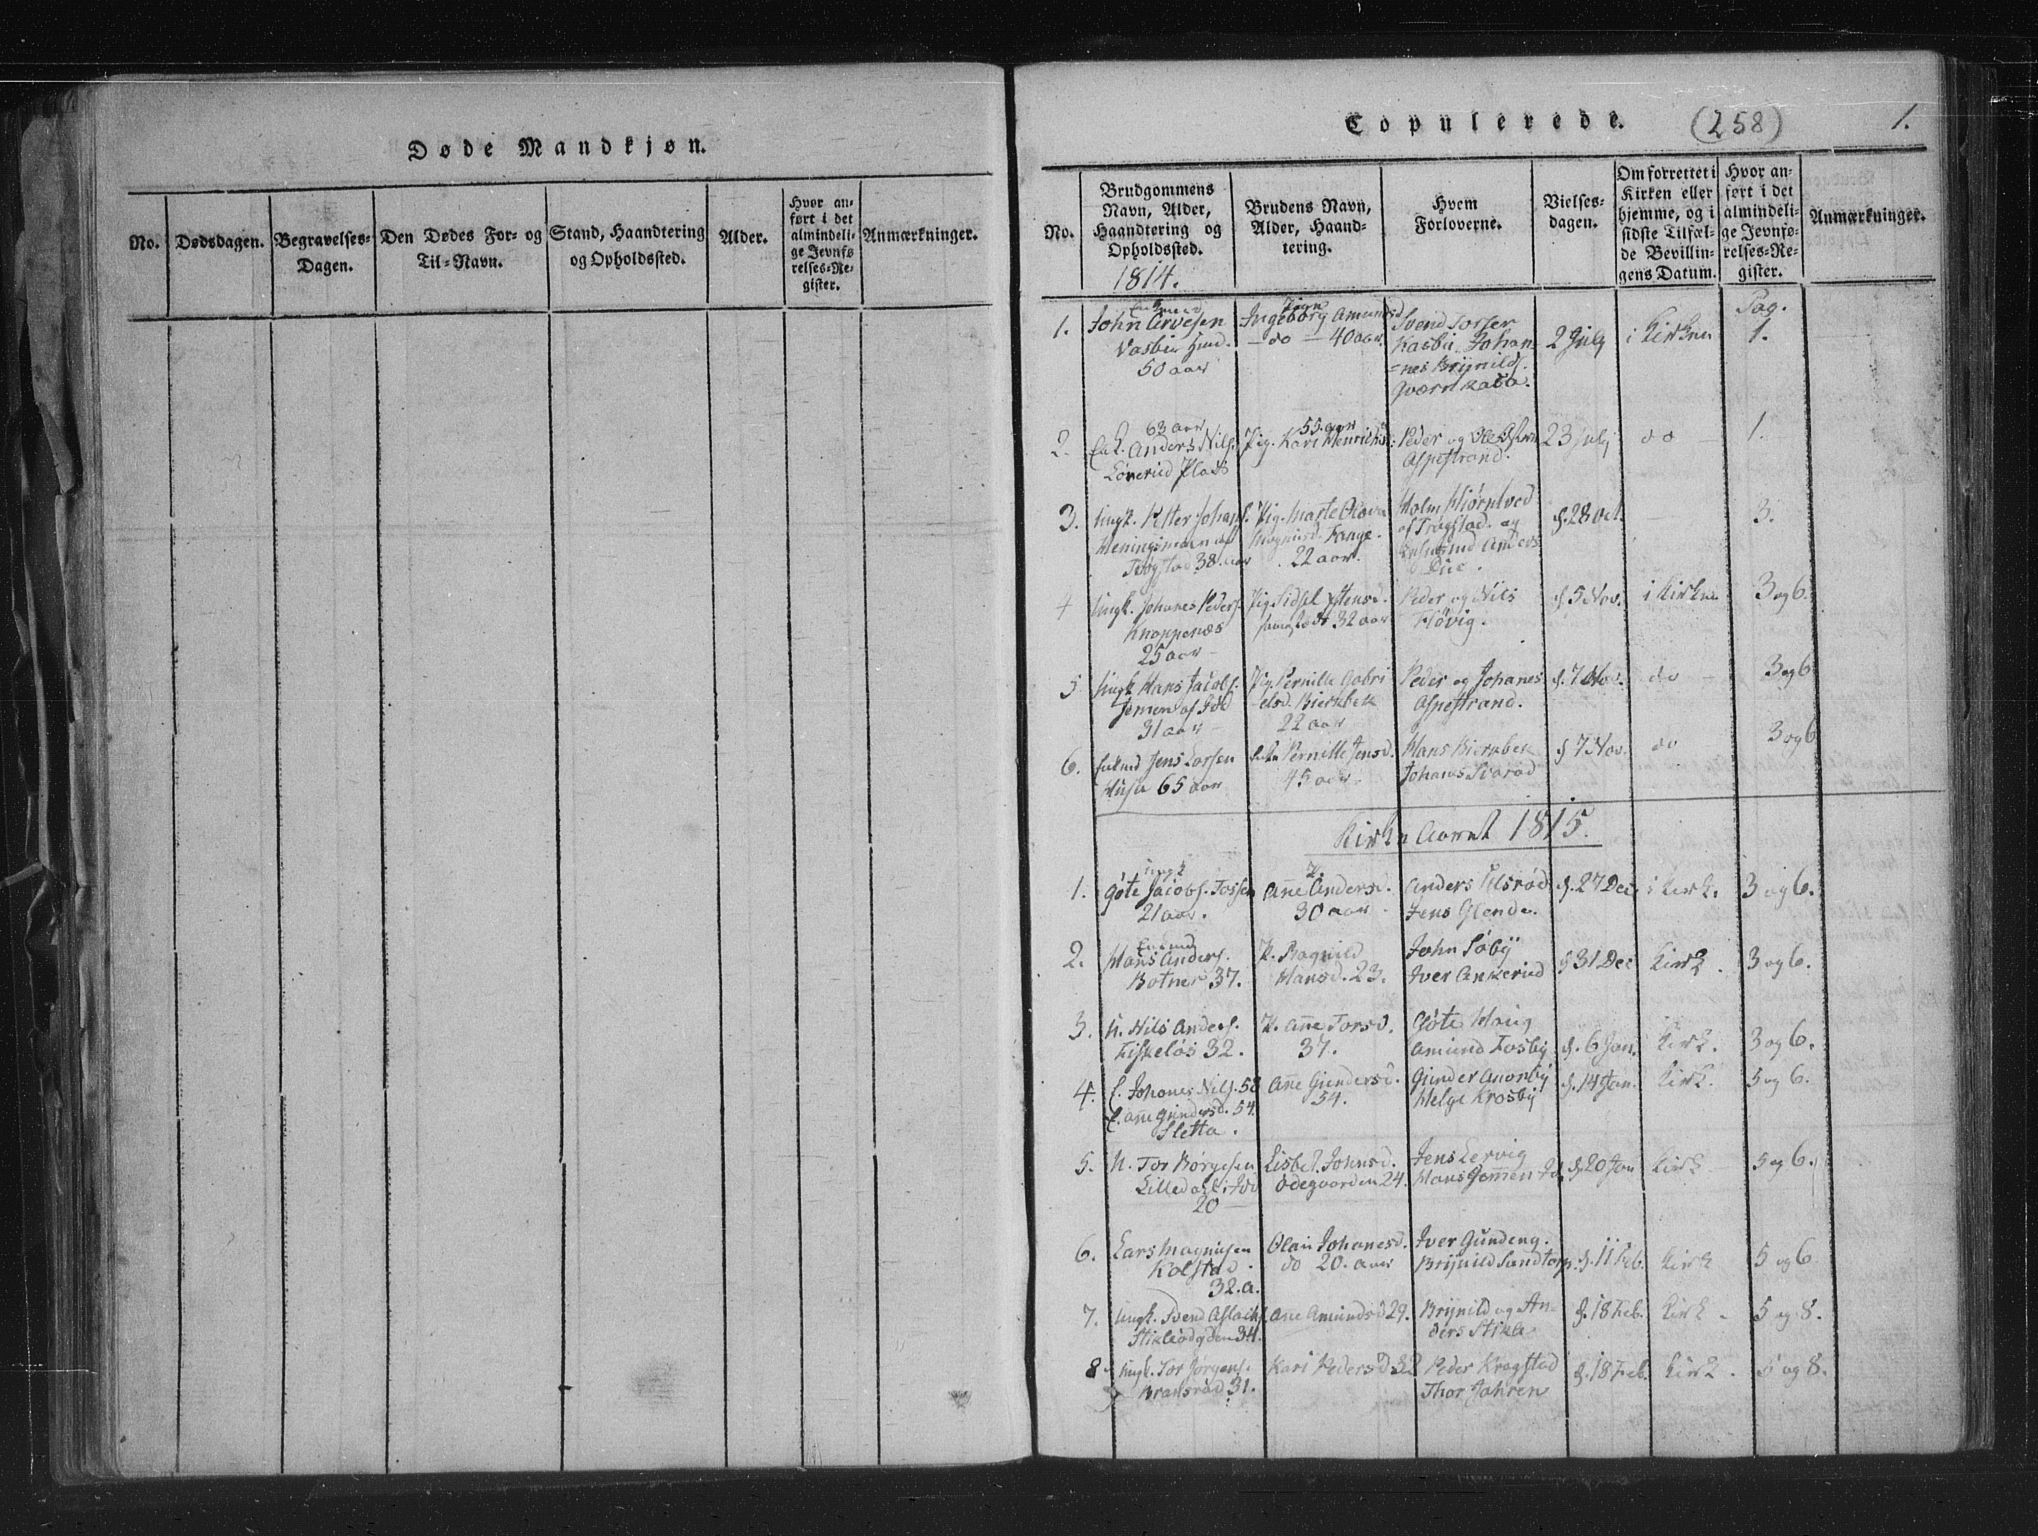 Døde Mandkjøn.
No.
Dødsdagen.
Begravelses-
Dagen.
Den Dødes For- og
Til-Navn.
Stand, Haandtering
og Opholdssted.
Alder.
Hvor an-
ført i det
almindeli-
ge Jevnfø-
relses-Re-
gister.
Anmærkninger.
Copulerede.
(258)
1.
No.
Brudgommens
Navn, Alder,
Haandtering og
Opholdssted.
Brudens Navn,
Alder, Haand-
tering.
Hvem
Forloverne.
Vielses-
dagen.
Om forrettet i
Kirken eller
hjemme, og i
sidste Tilfæl-
de Bevillin-
gens Datum.
Hvor an-
ført i det
almindeli-
ge Jevnfø-
relses-Re-
gister.
Anmærkninger.
1814.
Pag.
1.
John Arvesen
50 aar
Ingeborg Amundsd
- do - 40 aar
Svend
Kasbÿ Johan
=nes Brÿnilds.
2 Julÿ
i Kirken
1.
2.
63 aar
Enk. Anders Nils.
Löverud Plads
55 aar
Pig. Kari Henrichsd:
Peder og Ole
Aspestrand.
23 julÿ
do
1.
3.
Ungk. Petter Johans.
Trögstad 38 aar
Pig. Marte Olava
Magnusd. Fange.
22 aar.
Holm
af Trögstad. og
Anders
d. 28 Oct.
3.
4
Ungk. Johanes Peders.
Knappenæs
25 aar
Pig. Sidsel Stensd.
32 aar
Peder og Nils
Høvig.
d. 5 Nov.
i Kirken
3 og 6.
5
Ungk Hans Jacobs.
31 aar
Pig. Pernille Gabri
elsd. Bierkbek
22 aar
Peder og Johanes
Aspestrand.
d. 7 Nov.
do
3 og 6
6.
Enkmd Jens Larsen
Huse 65 aar
Enke Pernille Jensd.
45 aar
Hans Bierkbek
Johanes
d 7 Nov.
do
3 og 6
Kirke Aaret 1815.
1.
Ungk
Göte Jacobs. Fossen
21 aar.
P.
Añe Andersd.
30 aar
Anders
Jens Glende.
d. 27 Dec
i Kirk.
3 og 6.
2.
Enkmd
Hans Anders.
Botner 37.
P. Ragnild
Hansd. 23.
John Søbÿ
Iver Ankerud
d 31 Dec
Kirk.
3 og 6.
3.
U. Nils Anders.
Fiskeløs 32.
P. Añe Torsd.
37.
Göte Haug
Amund Fosbÿ
d. 6 Jan.
Kirk.
3 og 6.
4.
E. Johanes Nils. 58
E. Añe Gundersd. 54.
Sletta.
Añe Gundersd.
54.
Gunder
Helge Krosbÿ
d. 14 Jan.
Kirk.
5 og 6.
5.
U. Tor Börgesen
20
Lisbet Johnsd.
Ödegaarden 24.
Jens Lervig
Hans
d 20 Jan
Kirk
5 og 6.
6.
Lars Magnusen
Kolstad.
32. a.
Olau Johanesd.
do 20. aar
Iver Gundeng.
Brÿnild Sandtorp.
d. 11 Feb.
Kirk
5 og 6
7.
Ungk. Svend Aslachs.
34.
Ane Amundsd 29.
Brÿnild og An-
ders Stikle
d. 18 Feb.
Kirk.
5 og 8.
8
Ungk. Tor Jörgens.
31.
Kari Pedersd 32
Peder Kragstad
Thor Jahren
d. 18 Feb.
Kirk.
5 og 8.